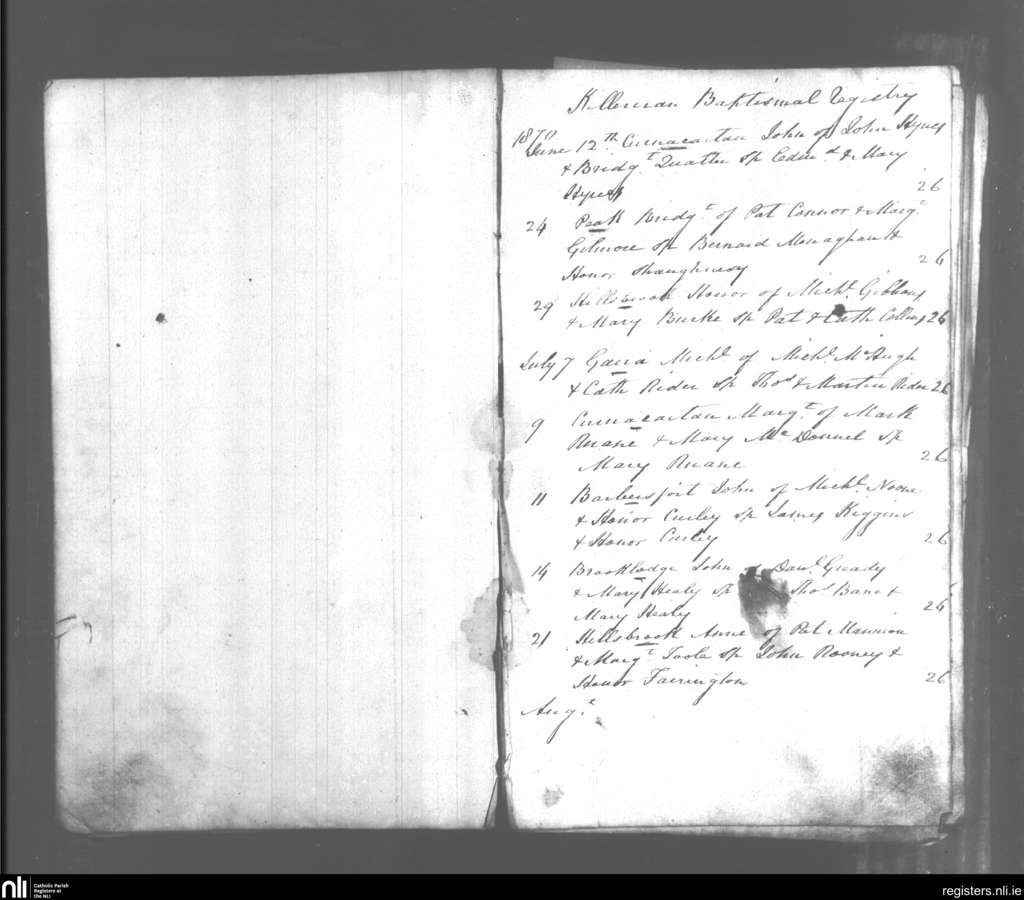 Killereran Baptismal Registry
1870
June 12th Cummacartan John of John Hynes
& Bridgt Quatter Sp Edmd & Mary
Hynes 26
24 Peak Bridgt of Pat Connor & Margt
Gilmore Sp Bernard Monaghan &
Honor Shaughnessy 26
29 Hillsbrook Honor of Michl Gibbons
& Mary Burke Sp Pat & Cath Collins 26
July 7 Garra Michl of Michl McHugh
& Cath Rider Sp Thos & Martin Rider 26
9 Cummacartan Margt of Mark
Ruane & Mary McDonnel Sp
Mary Ruane 26
11 Barbersfort John of Michl Noone
& Honor Curley Sp James Higgins
& Honor Curley 26
14 Brooklodge John Danl Gready
& Mary Healy Sp Thos Bane &
Mary Healy 26
21 Hillsbrook Anne of Pat Mannion
& Margt Toole Sp John Rooney &
Honor Fairington 26
Augt
nli Catholic Parish
Registers at
the NLI
registers.nli.ie